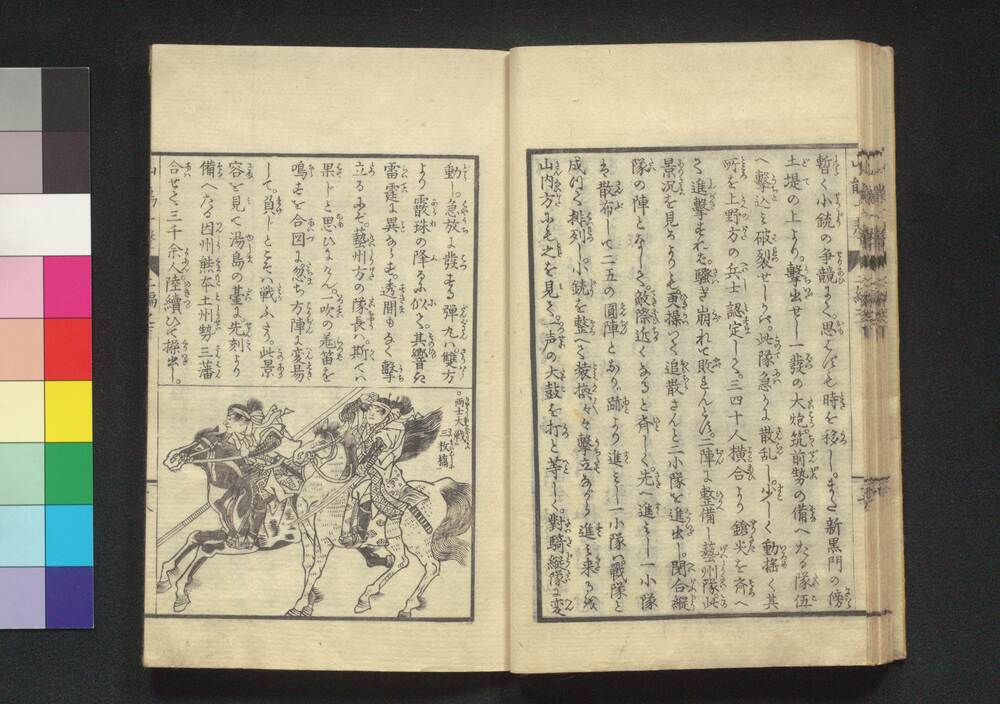 暫く小銃の争競よく。思はずも時を移し。また新黒門の傍
土堤の上より。擊出せし一發の大炮。筑前勢の備へたる隊伍
へ擊込ミ破裂せしかバ。此隊急かに散乱し。少しく動揺く其
所を上野方の兵士認定しく。三四十人横合より鎗尖を斉へ
て進擊すれバ。騒ぎ崩れて敗走んとす。二陣に整備し藝州隊此
景况を見るよりも。更操つく追散さんと二小隊を進出し開合縦
隊の陣となして。敵際近くなると斉しく。先へ進ミし一小隊
ハ散布して二五の圓陣となり。跡より進ミし一小隊ハ戰隊と
成つく排列し。小銃を整へて装換々々擊立ながら進ミ来る。
山内方にも之を見て。一声の大鼓を打と等しく。對騎縦隊に変
動し。急放に發する彈丸ハ雙方
より霰珠の降るに似て。其響キ
雷霆に異ならず。透間もなく擊
立るにぞ。藝州方の隊長ハ。斯てハ
果じと思ひけん。一吹の笛を
鳴すを合図に忽ち方陣に変易
して。負じとこそハ戰ふたり。此景
容を見て湯島の臺に先刻より
備へたる因州熊本土州勢三藩
合せて三千余人陸續ひて操出し。
両士大戰
三枚橋